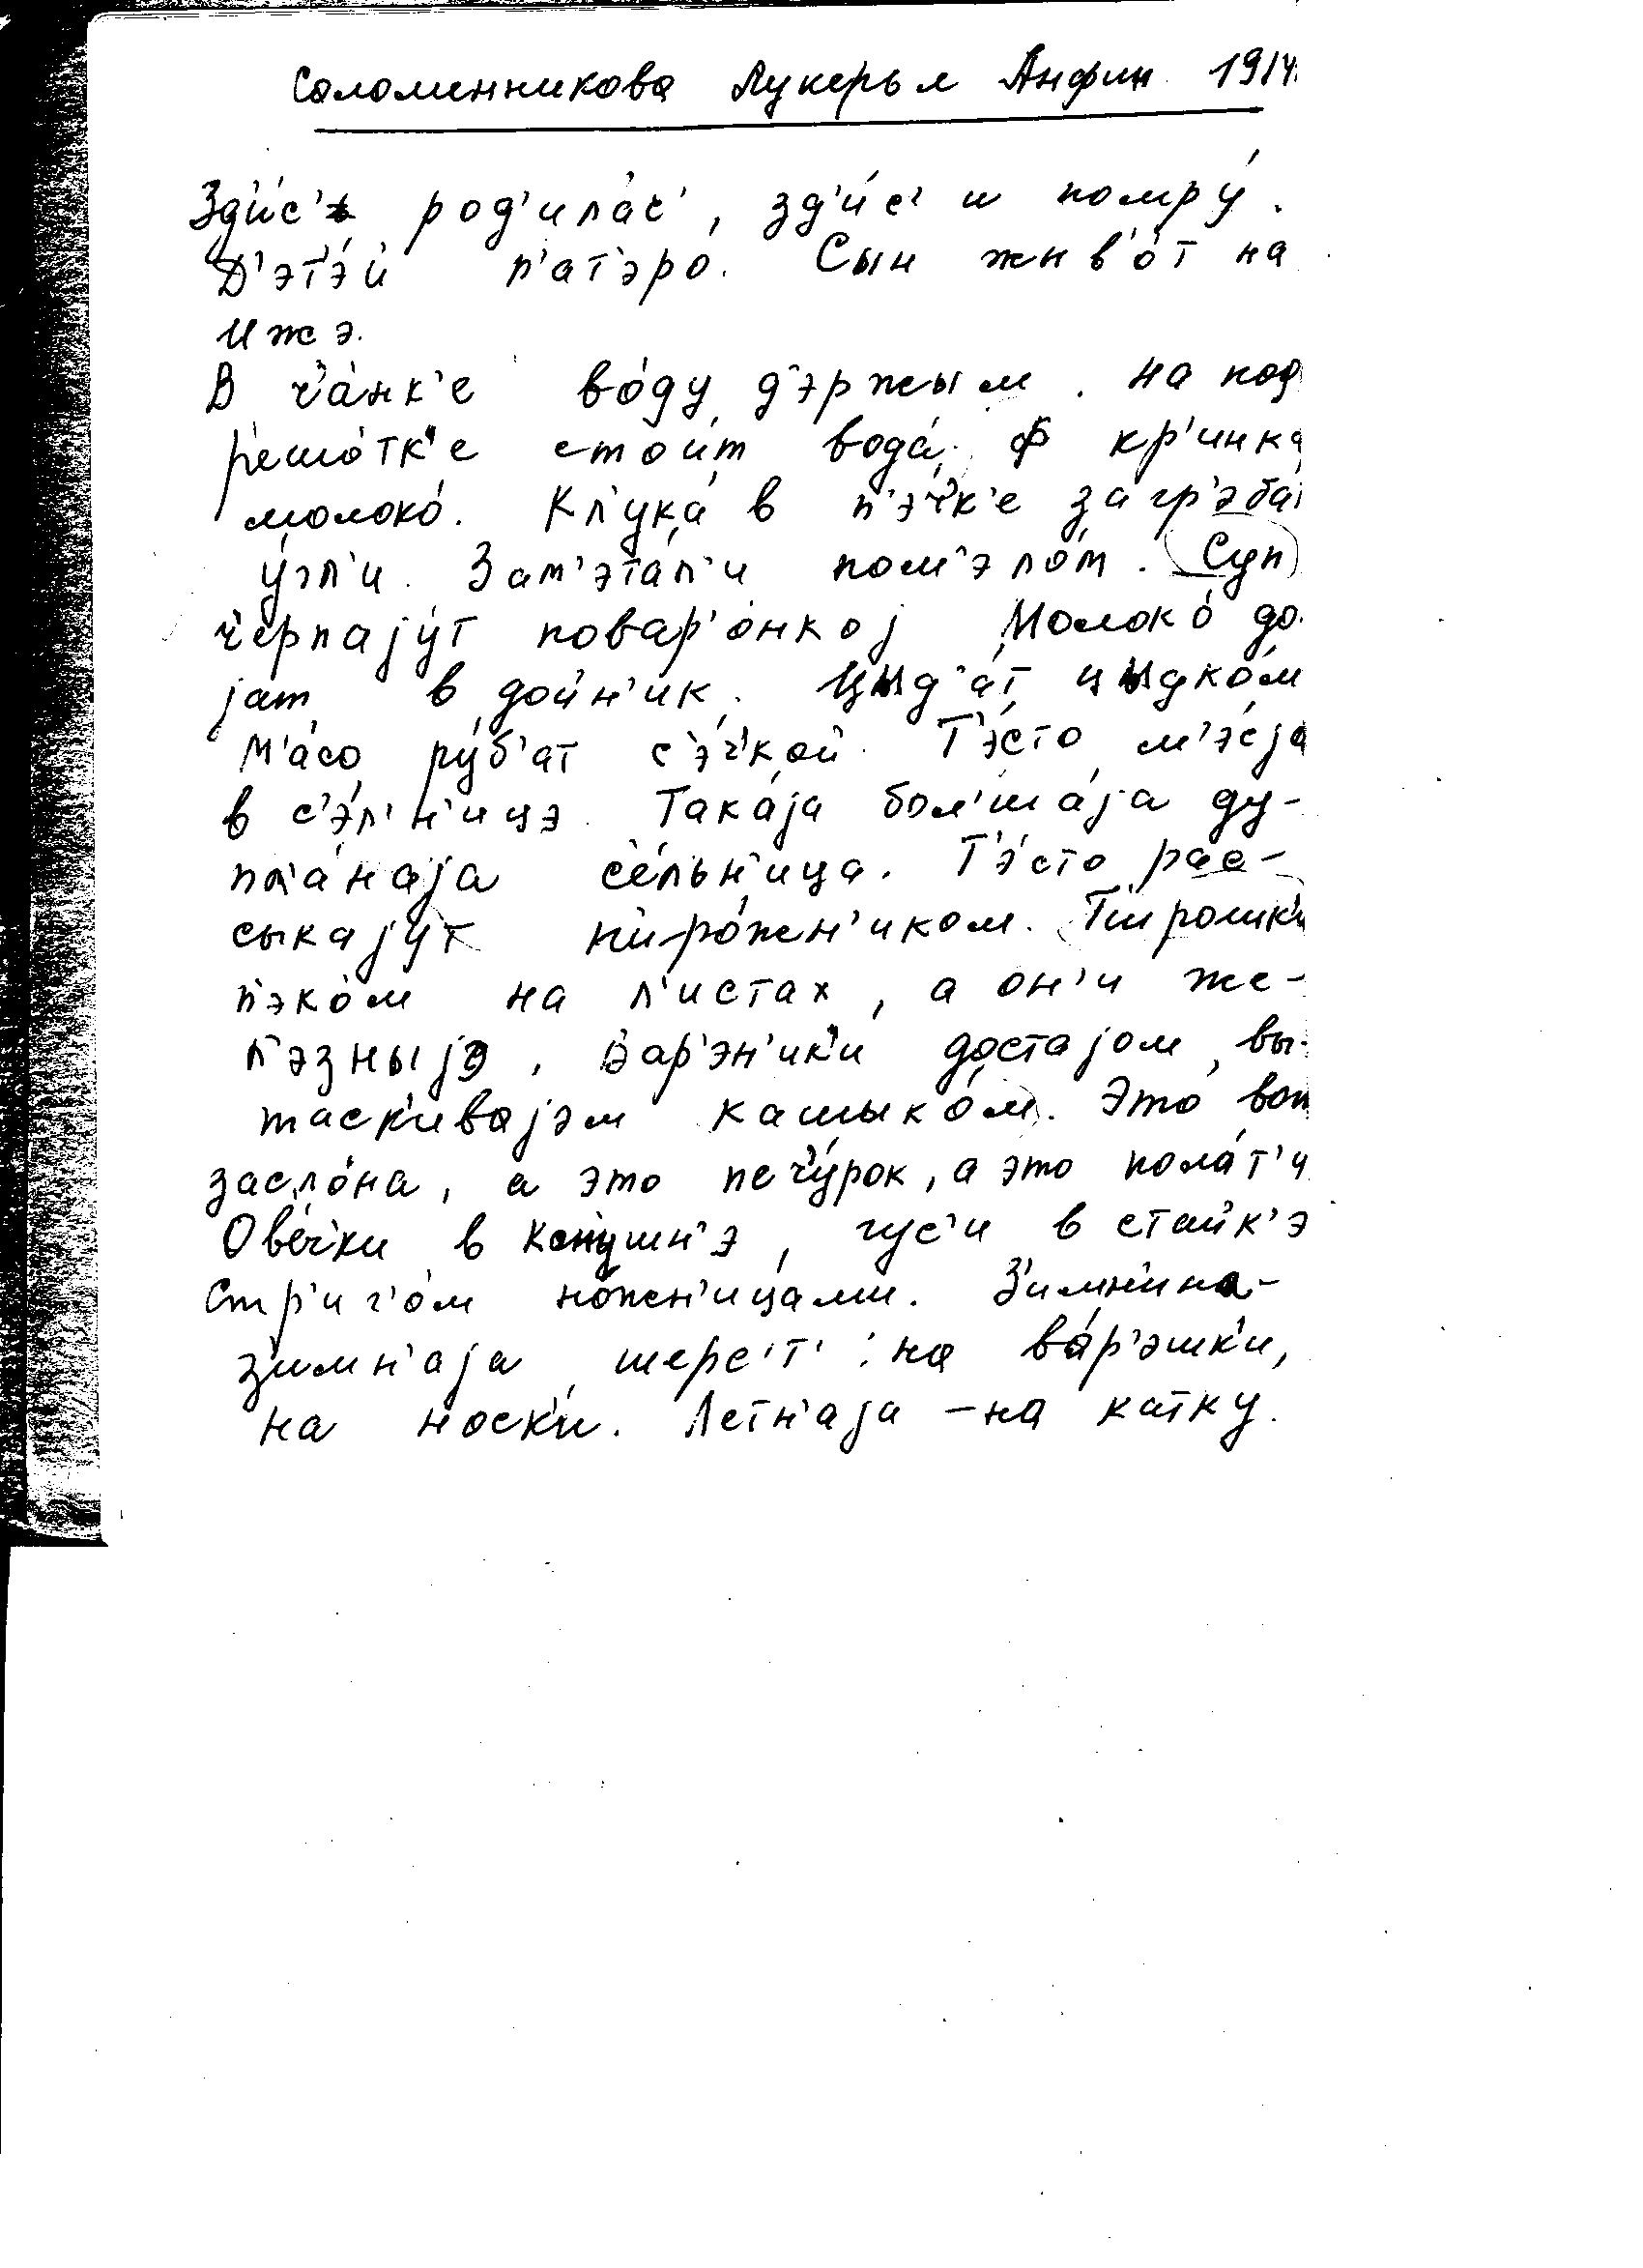 Соломенникова Лукерья Анфин. 1914
Зд'и́с' род'ила́с', зд'и́с' и помру́.
Д'эт'э́й п'ат'эро́. Сын жыв'о́т на
Ижэ.
В ч'а́нк'е во́ду д'эржы́м. на под
р'ешо́тк'е стои́т вода́. Ф кр'инк
молоко́. Кл'ука́ в п'э́ч'к'е загр'эба́
у́гл'и. Зам'эта́л'и пом'эло́м. (Суп)
ч'ерпајут повар'о́нкој Молоко́ до
јат в дойн'ик. Цыд'а́т цыдко́м
М'а́со ру́б'ат с'э́ч'кой. Т'э́сто м'э́с'а
в с'э́л'н'ицэ. Така́ја бол'ша́ја ду-
пл'а́наја се́льн'ица. Т'э́сто рас-
сыкају́т пиро́жн'иком. Пирошк'и
п'эко́м на л'истах, а он'и же-
л'э́зныјэ. Вар'э́н'ик'и достајом, вы-
таск'ивајэм кашыко́м. Это вот
засло́на, а это печу́рок, а это пола́т'и
Ове́чки в конушн'э, гус'и в стайк'э
Стр'иг'о́м но́жн'ицами. З'имн'ина-
з'имн'аја шерс'т': на ва́р'эшк'и,
на носк'и́. Летн'аја – на катку.